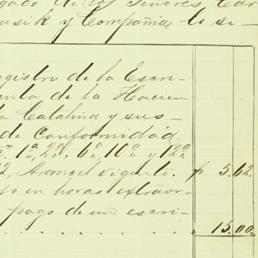 gado de los Señores, Car
usik y Compañia lo si-
egistro de la Escri-
enta de la Hacien
a Catalina y sus
de Conformidad,
1ª, 2ª, 6ª, 10ª y 12ª
2, Arancel vigente. $ 5.62
o en horas extraor
pago de un escri-
15.00